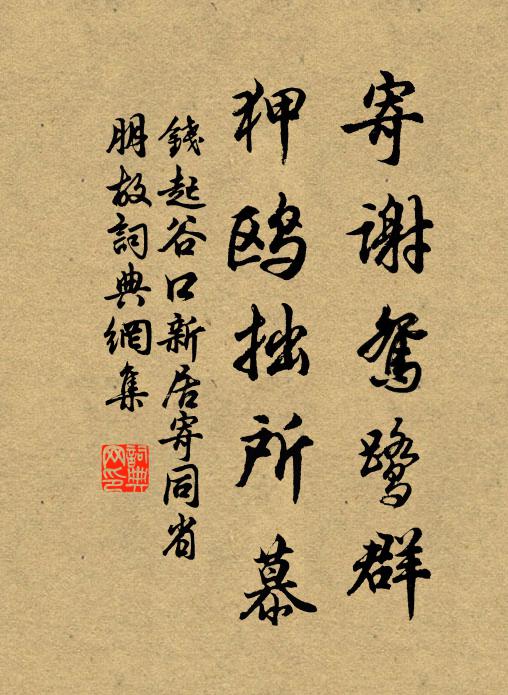 寄谢鴛鹭群
狎鸥拙所慕
錢起谷口新居寄同省
朋故詞典網集
詞典
网印